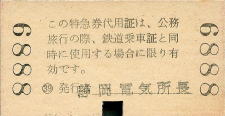 この特急券代用証は、公務
旅行の際、鉄道乗車証と同
時に使用する場合に限り有
効です。
発行 静岡電気所長
6888
6888